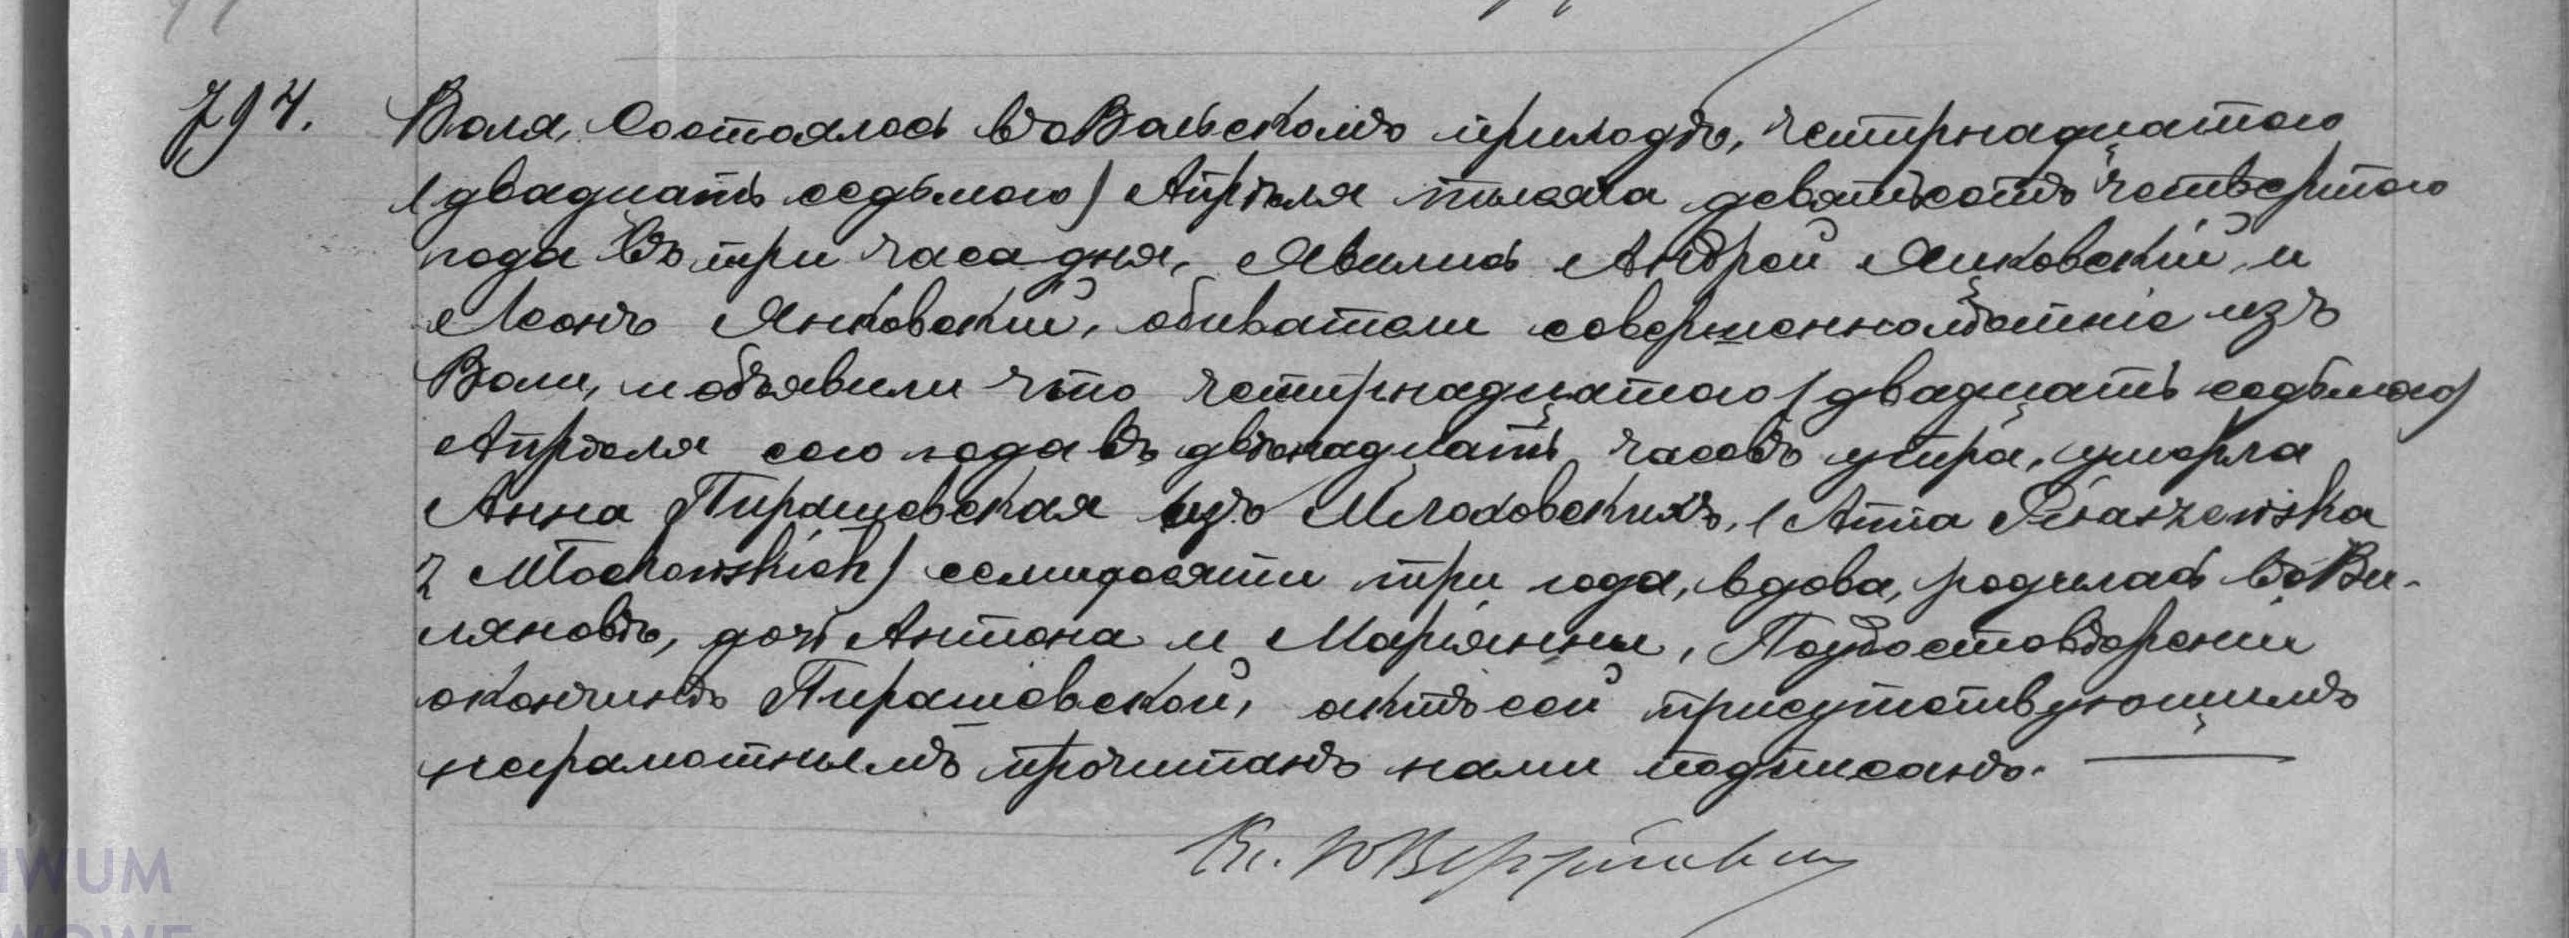 794.
Воля, Состоялось въ Вольскомъ приходѣ, четырнадцатого
(двадцать седьмого) Апрѣля тысяча девятьсотъ четвертого
года въ три часа дня, Явились Андрей Янковскій и
Леонъ Янковскій, обыватели совершеннолѣтніе изъ
Воли, и объявили что четырнадцатого (двадцать седьмого)
Апрѣля сего года въ двѣнадцать часовъ утра, умерла
Анна Пирашевская изъ Млоховскихъ, (Anna Piraszewska
z Młochowskich) семидесяти три года, вдова, родилась въ Ви-
ляновѣ, дочь Антона и Маріянны, По удостовѣреніи
о кончинѣ Пирашевской, актъ сей присутствующимъ
неграмотнымъ прочитанъ нами подписанъ.
Кс. Ю
IWUM
WOWE